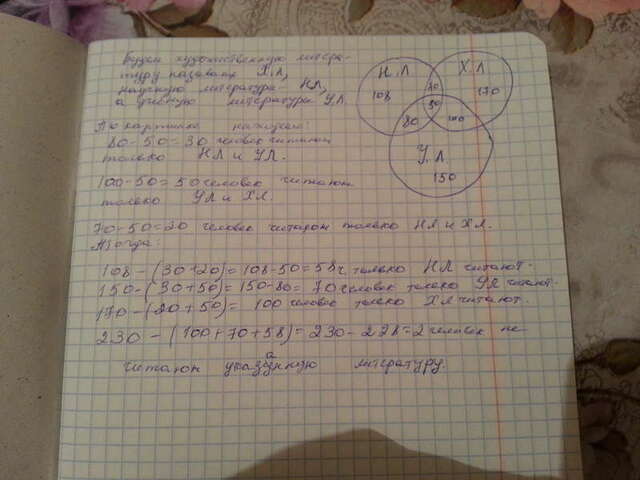 Будем художественную литера-
туру называть Х.Л,
научную литературу НЛ,
а учебную литературу УЛ.
По картинке находим:
80-50=30 человек читают
только НЛ и УЛ.
100-50=50 человек читают
только УЛ и ХЛ.
70-50=20 человек читают только НЛ и ХЛ.
Тогда:
108-(30+20)=108-50=58ч только НЛ читают.
150-(30+50)=150-80=70 человек только УЛ читают.
170-(20+50)=100 человек только ХЛ читают.
230-(100+70+58)=230-228=2 человек не
читают указанную литературу.
Н.Л
108
Х.Л
170
70
50
80
100
У.Л.
150